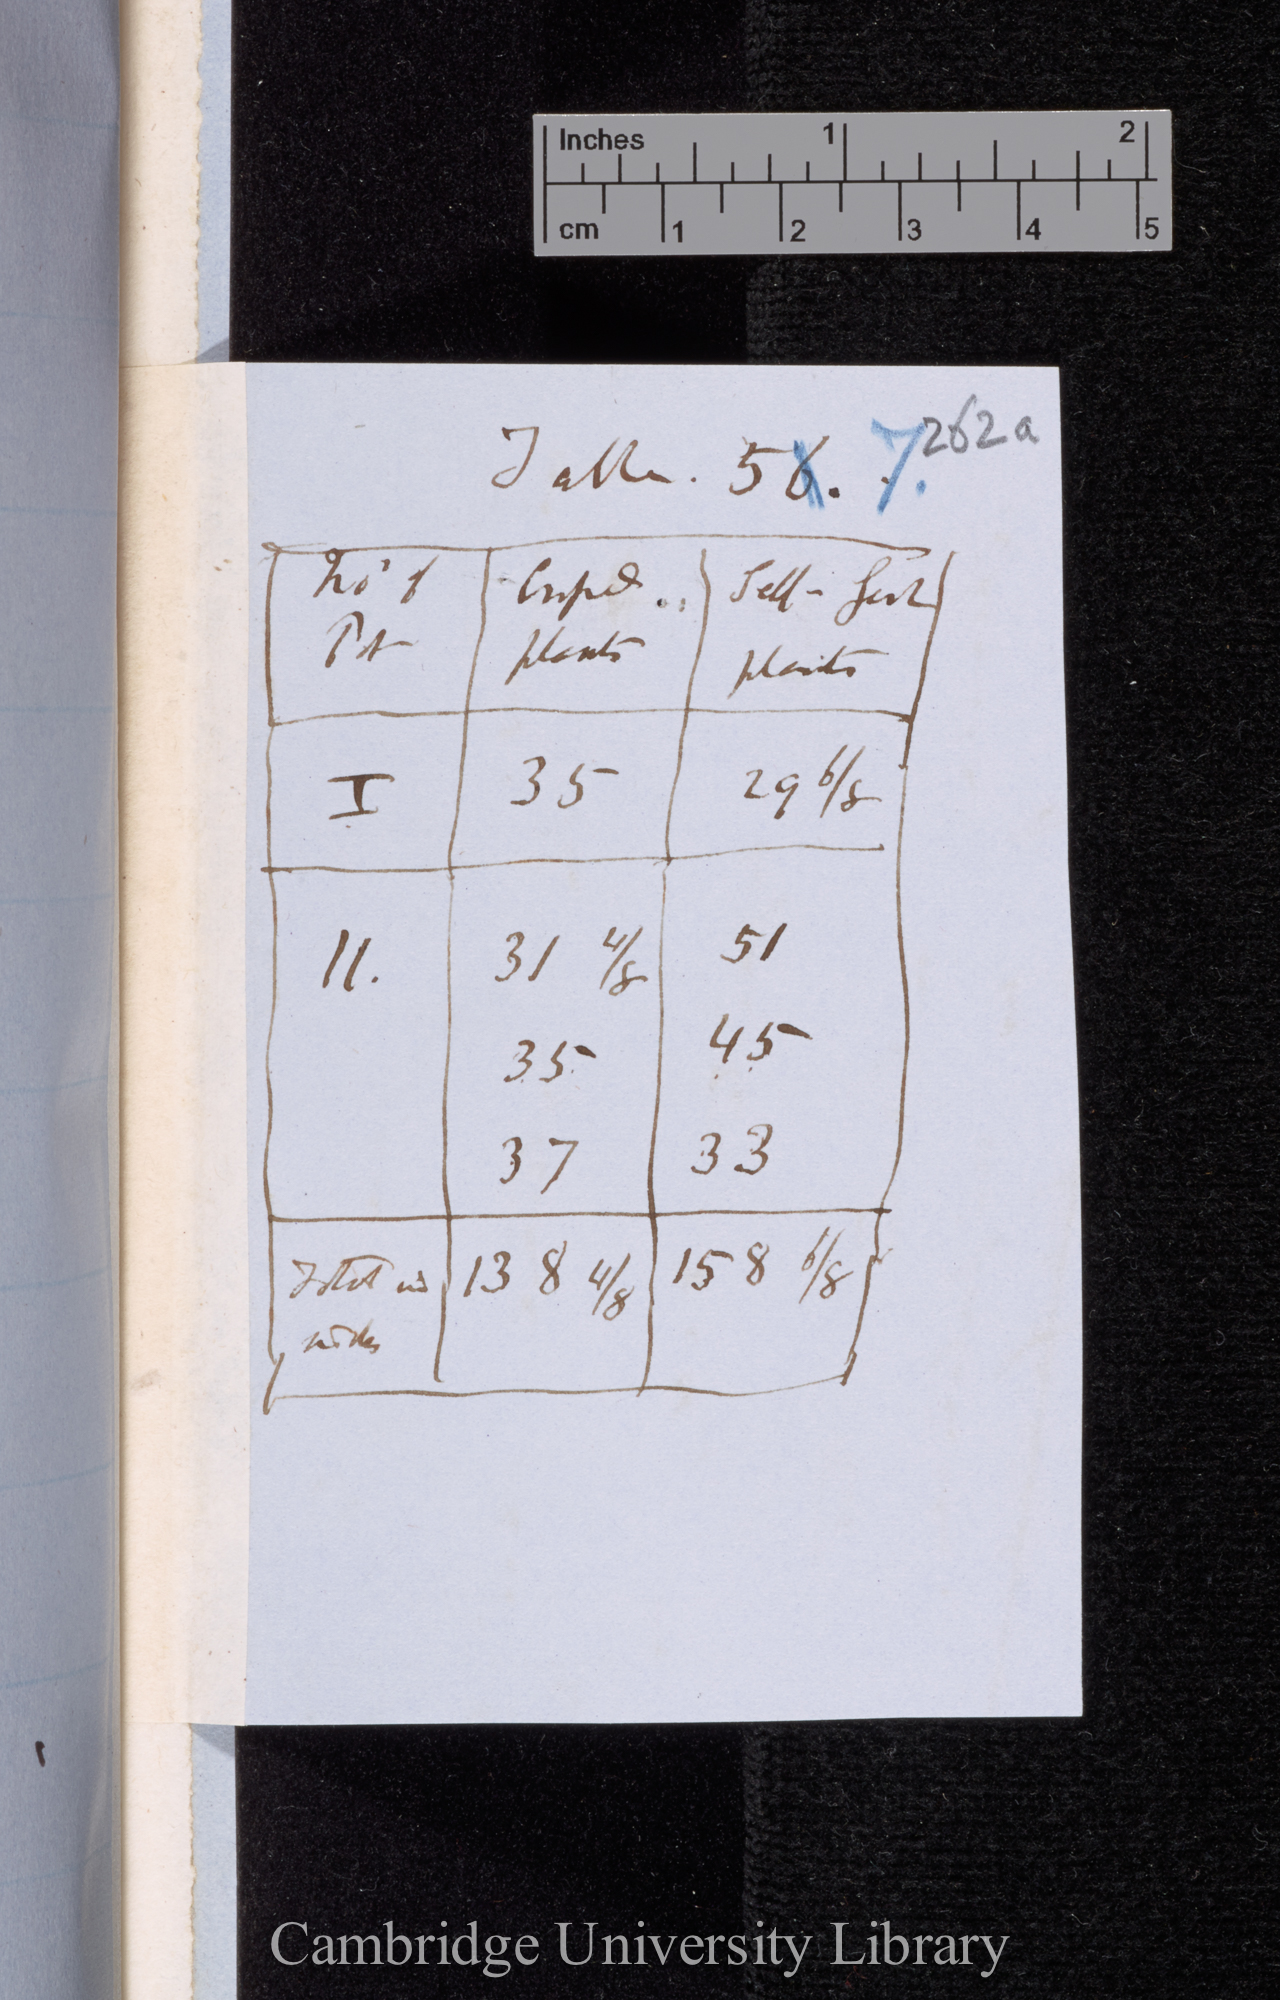 Inches 1 2
cm 1 2 3 4 5
262a
Table. 56. 7.
No of Crossed Self-fert
Pot plants plants
I 35 29 6/8
II. 31 4/8 51
35 45
37 33
Total in 138 4/8 158 6/8
inches
Cambridge University Library